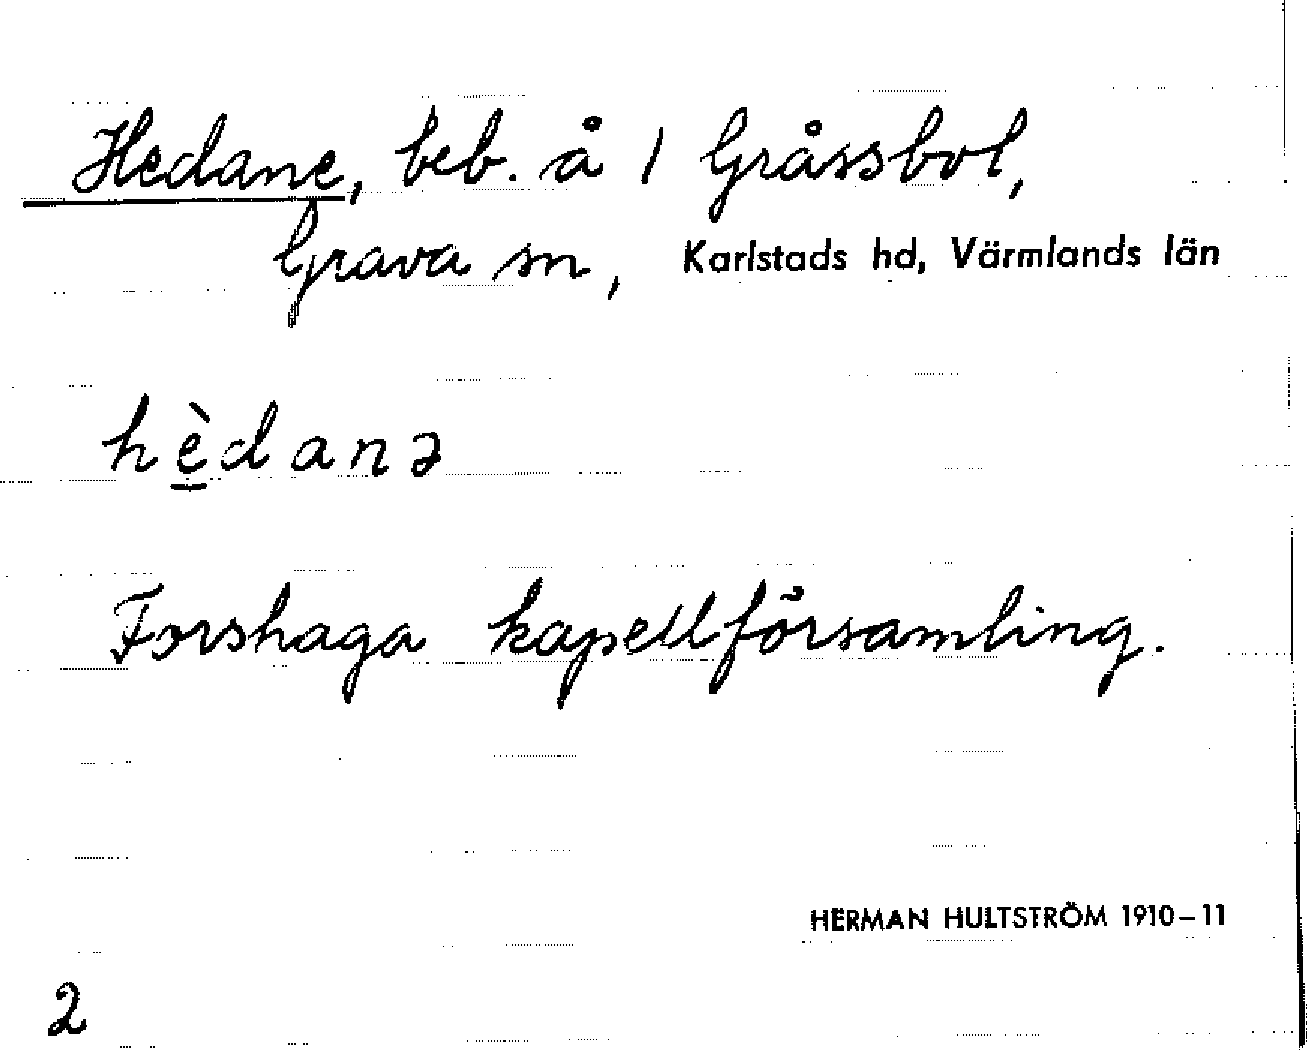 Hedane, beb. å 1 Gråssbol,
Grava sn, Karlstads hd, Värmlands län
hè̠danə
Forshaga kapellförsamling.
HERMAN HULTSTRÖM 1910–11
2